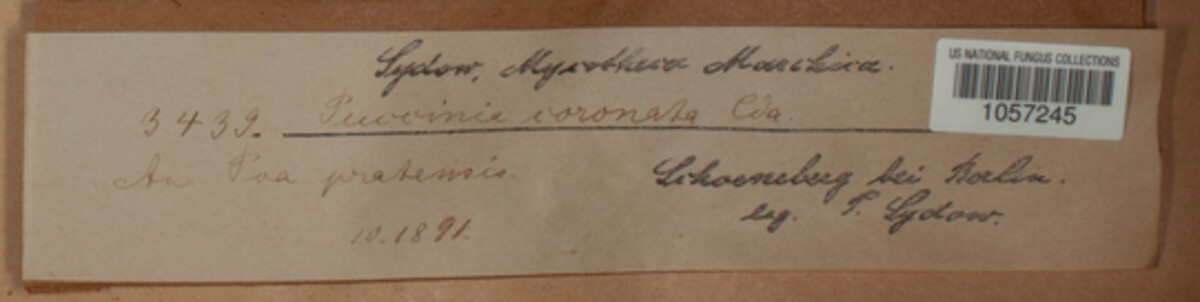 Sydow, Mycotheca Marchica.
US NATIONAL FUNGUS COLLECTIONS
1057245
3439. Puccinia coronata Cda.
An Poa pratensis.
Schoeneberg bei Berlin.
leg. P. Sydow.
10.1891.